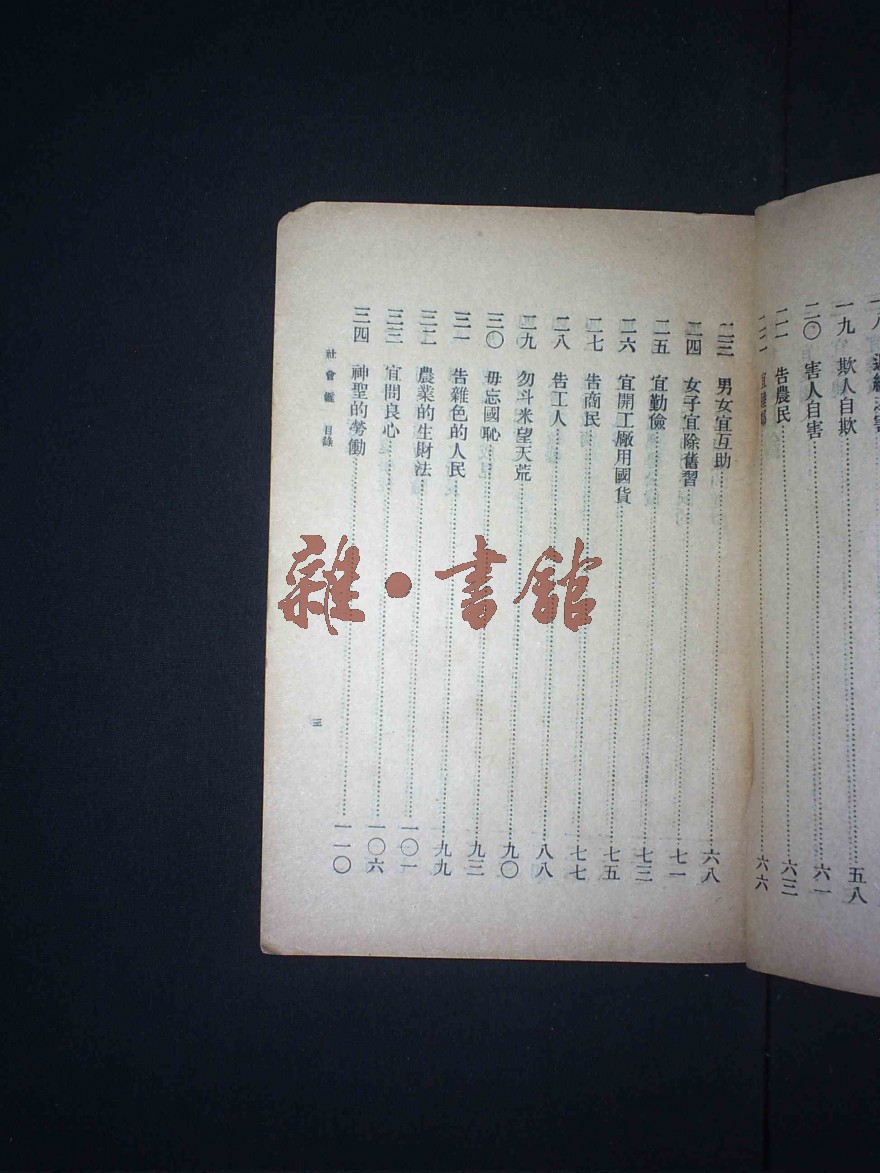 一九 欺人自欺 五八
二〇 害人自害 六一
二一 告農民 六三
二二 六六
二三 男女宜互助 六八
二四 女子宜除舊習 七一
二五 宜勤儉 七三
二六 宜開工廠用國貨 七五
二七 告商民 七七
二八 告工人 八八
二九 勿斗米望天荒 九〇
三〇 毋忘國恥 九三
三一 告雜色的人民 九九
三二 農業的生財法 一〇一
三三 宜問良心 一〇六
三四 神聖的勞働 一一〇
社會鑑 目錄
三
雜·書館